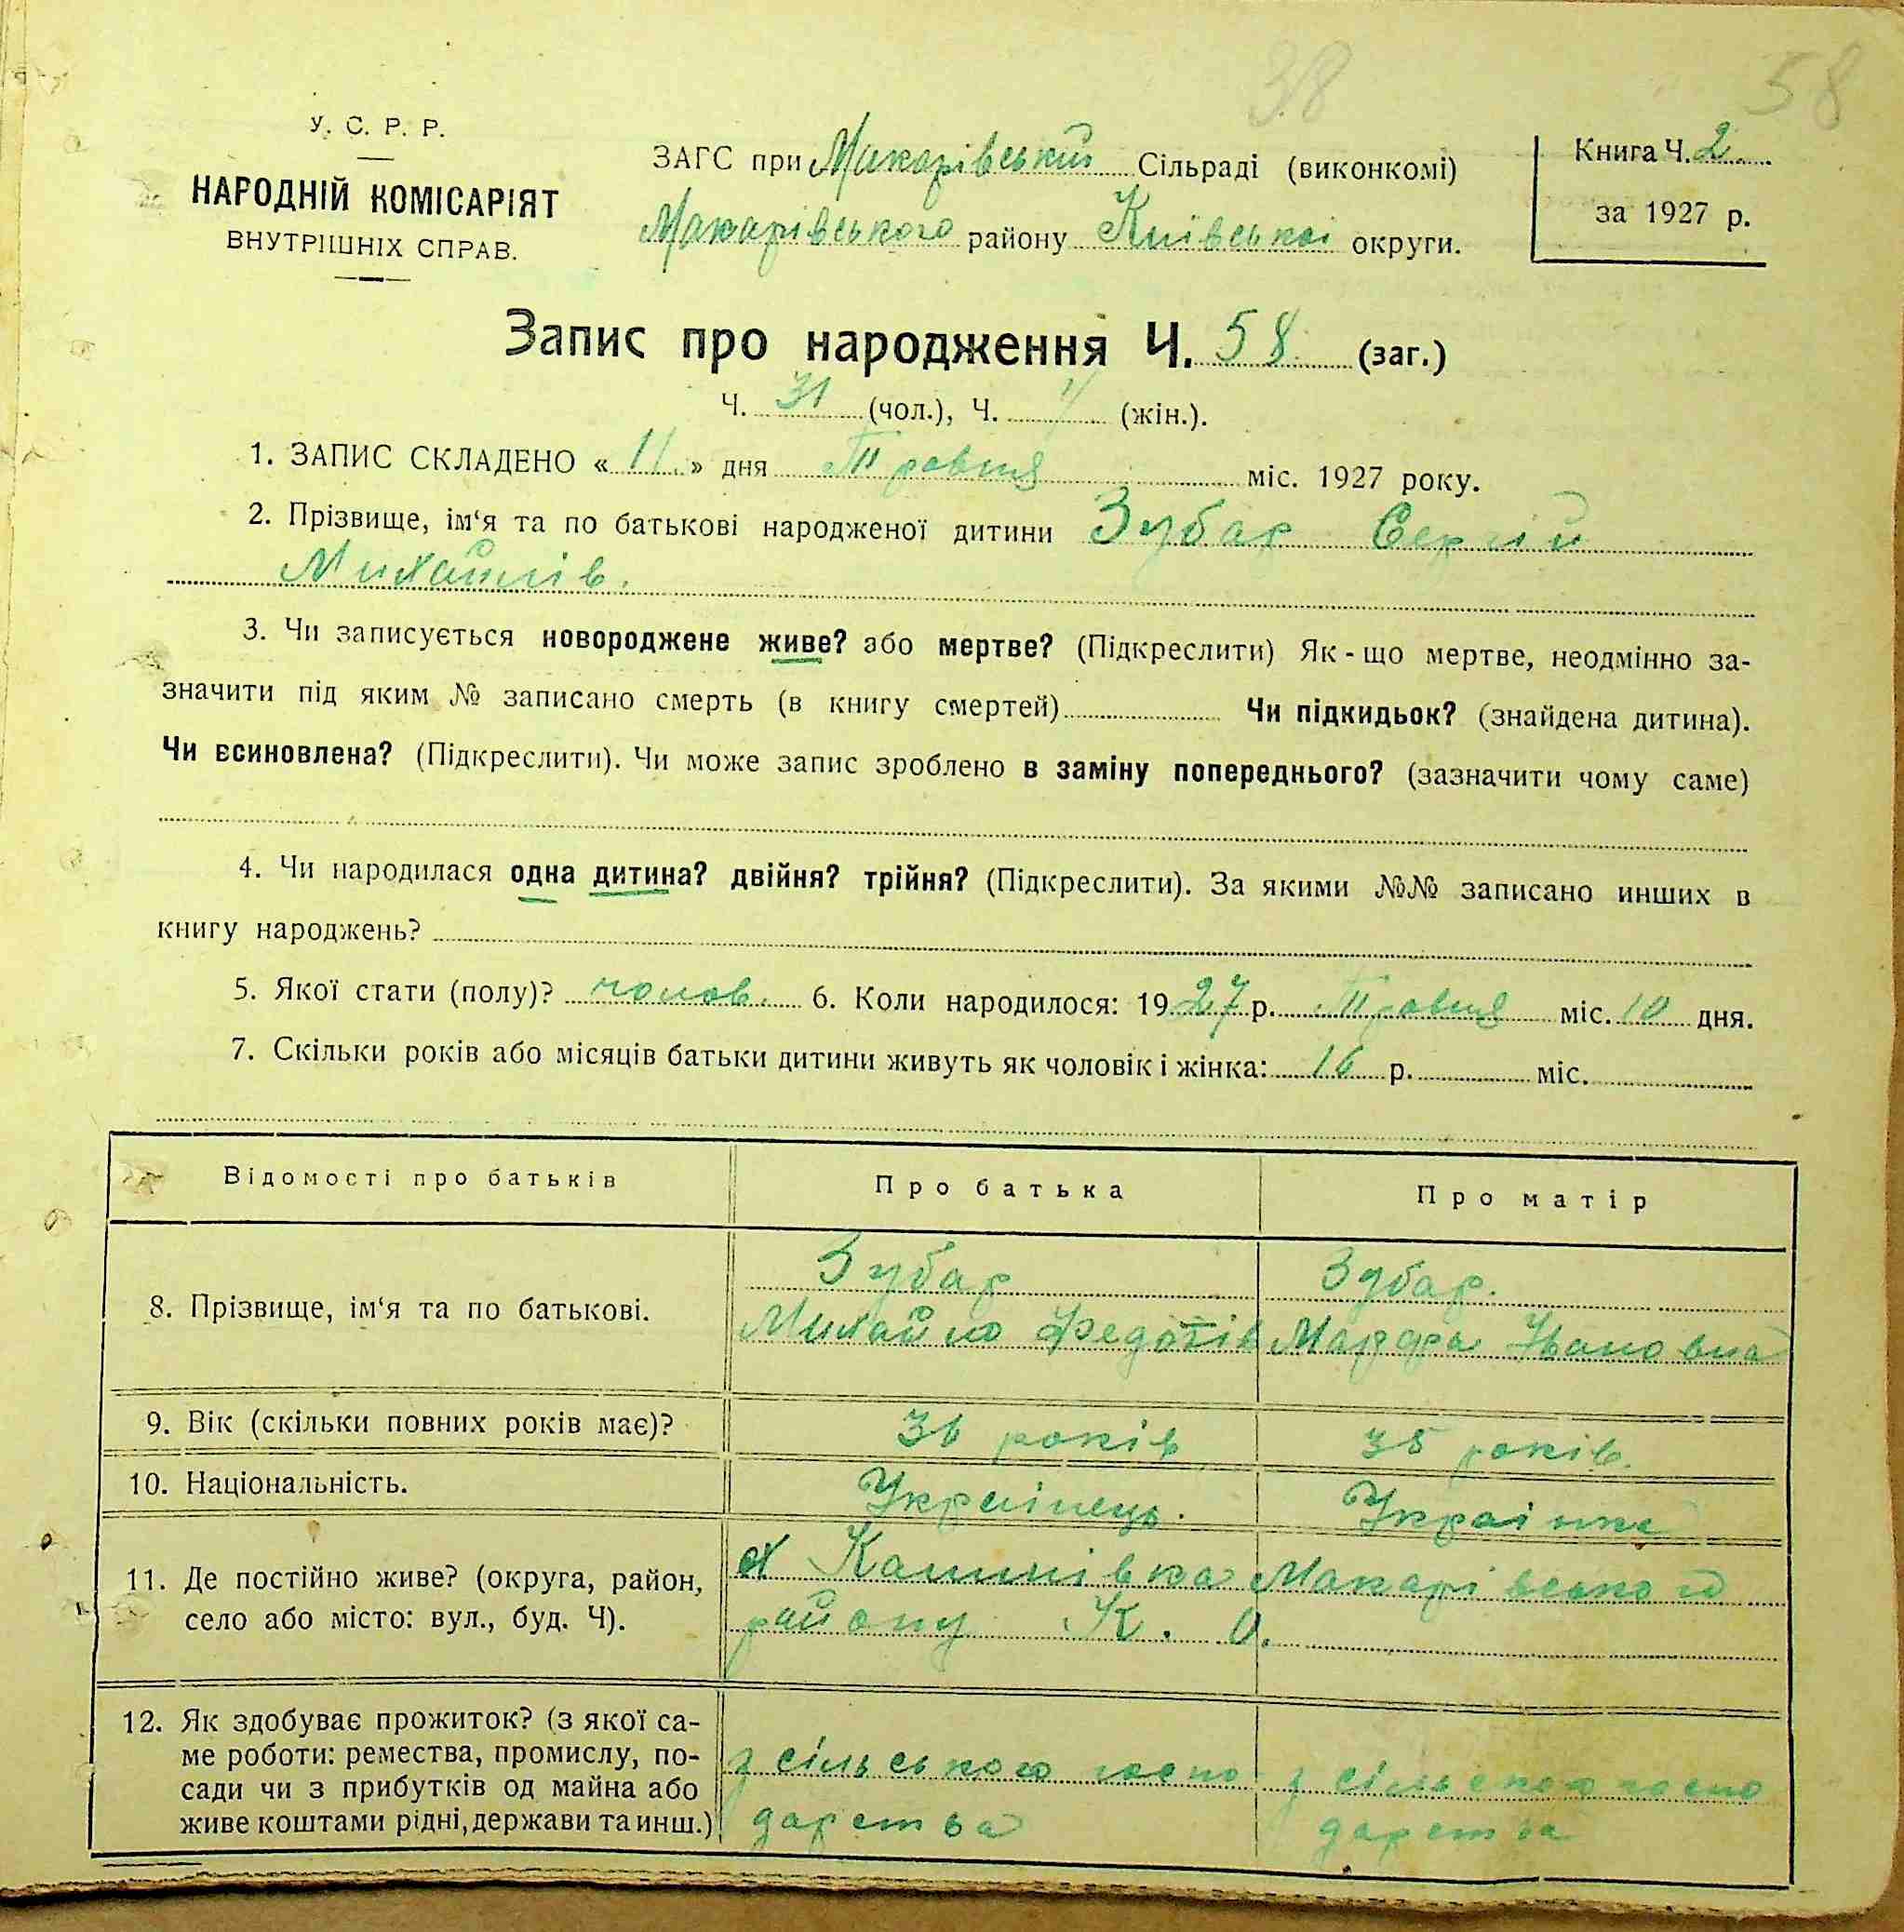 38 58
У. С. Р. Р.
НАРОДНІЙ КОМІСАРІЯТ
ВНУТРІШНІХ СПРАВ.
ЗАГС при Макарівський Сільраді (виконкомі)
Макарівського району Київської округи.
Книга Ч. 2
за 1927 р.
Запис про народження Ч. 58 (заг.)
Ч. 31 (чол.), Ч. (жін.).
1. ЗАПИС СКЛАДЕНО « 11 » дня Травня міс. 1927 року.
2. Прізвище, ім‘я та по батькові народженої дитини Зубар Сергій
Михайлів.
3. Чи записується новороджене живе? або мертве? (Підкреслити) Як-що мертве, неодмінно за-
значити під яким № записано смерть (в книгу смертей) Чи підкидьок? (знайдена дитина).
Чи всиновлена? (Підкреслити). Чи може запис зроблено в заміну попереднього? (зазначити чому саме)
4. Чи народилася одна дитина? двійня? трійня? (Підкреслити). За якими №№ записано инших в
книгу народжень?
5. Якої стати (полу)? чолов. 6. Коли народилося: 1927 р. Травня міс. 10 дня.
7. Скільки років або місяців батьки дитини живуть як чоловік і жінка: 16 р. міс.
Відомості про батьків Про батька Про матір
8. Прізвище, ім‘я та по батькові.
Зубар Зубар.
Михайло Федотів Марфа Івановна
9. Вік (скільки повних років має)? 36 років 35 років.
10. Національність. Українець. Українка
11. Де постійно живе? (округа, район,
село або місто: вул., буд. Ч).
х Калинівка Макарівського
району К. О.
12. Як здобуває прожиток? (з якої са-
ме роботи: ремества, промислу, по-
сади чи з прибутків од майна або
живе коштами рідні, держави та инш.)
з сільського госпо з сільского госпо
дарства дарства